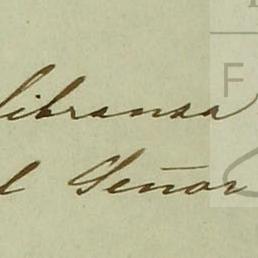 libransa
l Señor
F